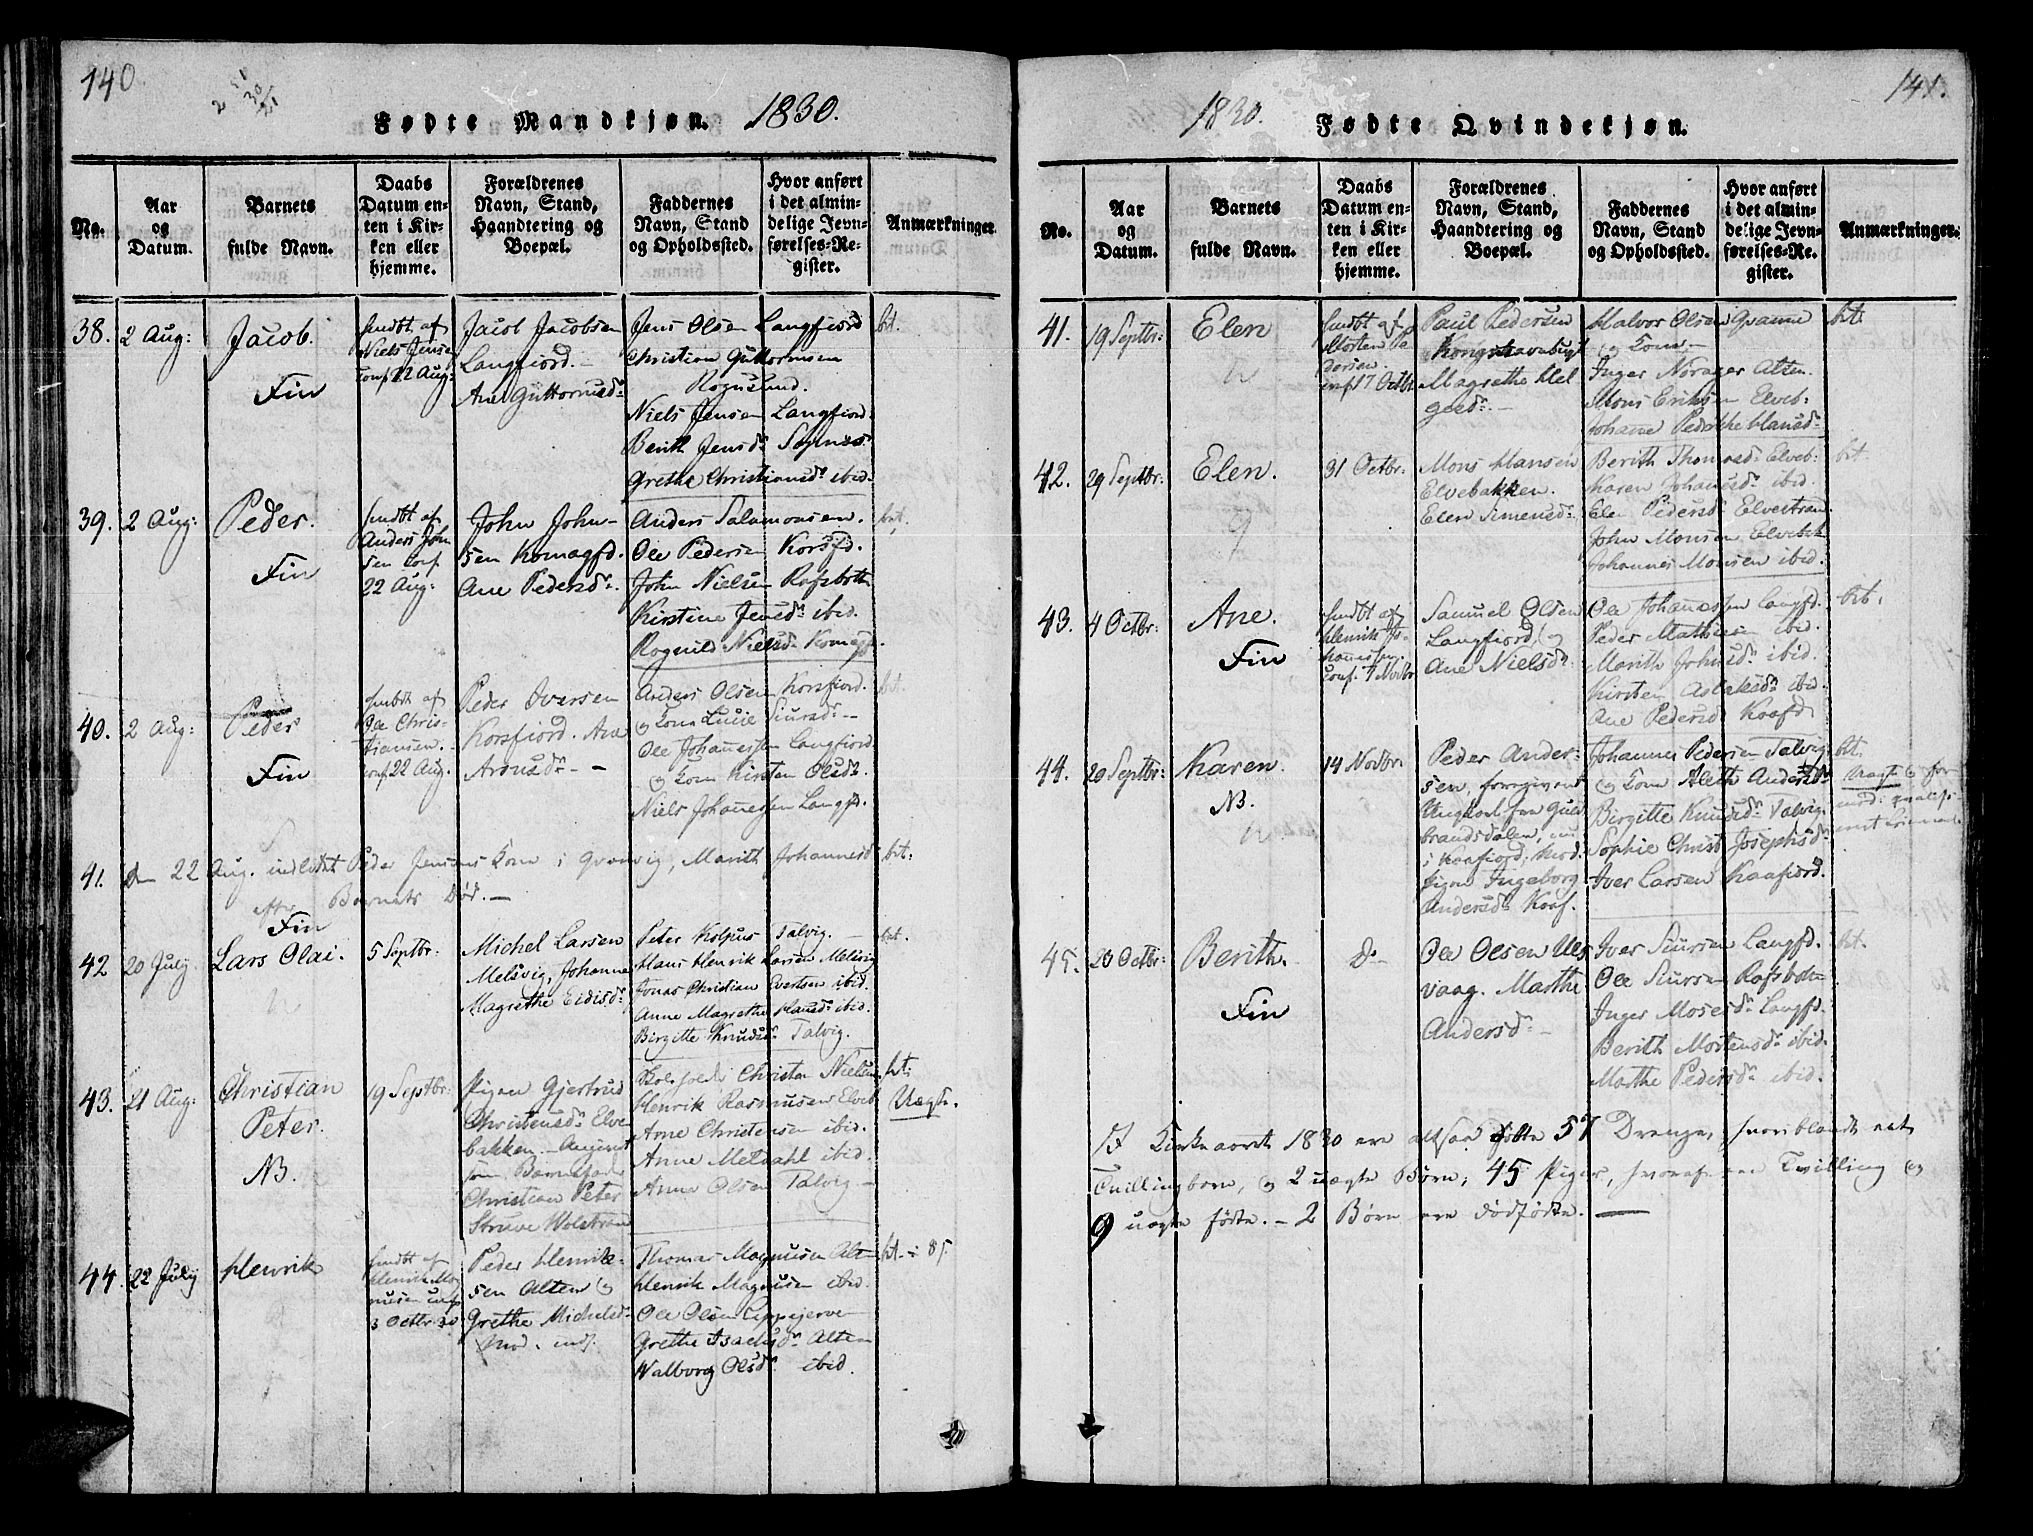 140
Fødte Mandkjøn. 1830.
No.
Aar
og
Datum.
Barnets
fulde Navn.
Daabs
Datum en-
ten i Kir-
ken eller
hjemme.
Forældrenes
Navn, Stand,
Haandtering og
Boepæl.
Faddernes
Navn, Stand
og Opholdssted.
Hvor anført
i det almin-
delige Jevn-
førelses-Re-
gister.
Anmærkninger.
38. 2 Aug:
Jacob.
Fin
hmdbt af
Niels Jensen
conf. 22 Aug:
Jacob Jacobsen
Langfiord.
Ane Guttormsdr
Jens Olsen Langfiord
Christian Guttormsen
Niels Jensen Langfiord.
Berith Jensdr
Grethe Christiansdr ibid.
bet.
39. 2 Aug:
Peder.
Fin
hmdbt af
Anders John
sen conf.
22 Aug:
John John-
sen Komagfd.
Ane Pedersdr
Anders Salamonsen.
Ole Pedersen Korsfd.
John Nielsen Rafsbotn
Kirstine Jensdr ibid.
Rognild Nielsdr Komagfd.
bet.
40. 2 Aug:
Peder
Fin
hmdbt af
Ole Chris-
tiansen.
conf. 22 Aug.
Peder Iversen
Korsfiord. Ane
Aronsdr
Anders Olsen Korsfiord.
og Kone Lucie Siursdr
Ole Johannessen Langfiord
og Kone Kirsten Olsdr
Niels Johannessen Langfd.
bet.
41. d 22 Aug. indledet Peder Jensens Kone i Qvænvig, Marith Johannesd bet:
efter Barnets Død.
Fin
42 20 July
Lars Olai.
5 Septbr:
Michel Larsen
Melsvig, Johanne
Magrethe Eidisdr
Peter Kolpus Talvig.
Hans Henrik Larsen Melsvig
Jonas Christian Evertsen ibid.
Anne Magrethe Hansdr ibid.
Birgitte Knudsdr Talvig.
bet.
43. 21 Aug:
Christian
Peter.
NB.
19 Septbr:
Pigen Gjertrud
Christensdr Elve
bakken. Angivet
som Barnefader
Christian Peter
Struve Wolstrand
Christen Nielsen
Henrik Rasmusen Elveb
Arne Christensen ibid.
Anne Metdahl ibid.
Anne Olsen Talvig
bet:
Uægte.
44. 22 July
Henrik
hmdbt af
Henrik Mag
nusen conf
3 Octbr 30
Peder Henrik-
sen Alten og
Grethe Michelsdr
Mod. inds.
Thomas Magnusen Alten
Henrik Magnusen ibid.
Ole Olsen Leppejerve
Grethe Isachsdr Alten
Walborg Olsdr ibid.
bet. 85
141.
1830. Fødte Qvindekjøn.
No.
Aar
og
Datum.
Barnets
fulde Navn.
Daabs
Datum en-
ten i Kir-
ken eller
hjemme.
Forældrenes
Navn, Stand,
Haandtering og
Boepæl.
Faddernes
Navn, Stand
og Opholdssted.
Hvor anført
i det almin-
delige Jevn-
førelses-Re-
gister.
Anmærkninger.
41. 19 Septbr:
Elen
hmdbt af
Morten Pe
dersen.
conf. 17 Octbr
Paul Pedersen
Kongshavnbugt
Magrethe Hel
gesdr
Halvor Olsen Qvænne
og Kone
Inger Norager Alten.
Mons Eriksen Elveb:
Johanne Hansdr
bet.
42. 29 Septbr:
Elen.
31 Octbr:
Mons Hansen
Elvebakken.
Elen Simensdr
Berith Thomasdr Elveb:
Karen Johansdr ibid.
Ele Pedersd Elvestrand
John Monsen Elvebak
Johannes Monsen ibid.
bet.
43. 4 Octbr:
Ane.
Fin
hmdbt af
Henrik Jo-
hannessen.
conf. 7 Novbr
Samuel Olsen
Langfiord, og
Ane Nielsdr
Ole Johannessen Langfd.
Peder Mathiesen ibid.
Marith Johnsdr ibid.
Kirsten Aslaksdr ibid.
Ane Pedersdr Kaafd
bet.
44. 20 Septbr:
Karen.
NB.
14 Novbr:
Peder Ander-
sen, foregivende
Ungkarl fra Guld
brandsdalen, nu
i Kaafiord, Mod.
Pigen Ingeborg
Andersdr Kaaf.
Johannes Pedersen Talvig
og Kone Aleth Andersdr
Birgitte Knudsdr Talvig
Sophie Christ Josephsdr
Iver Larsen Kaafiord.
bet.
Uægte
45. 20 Octbr:
Berith.
Fin
Do
Ole Olsen Uls
vaag. Marthe
Andersdr
Iver Siursen Langfd.
Ole Siursen Rafsbotn
Inger Mosesdr Langfd.
Berith Mortensdr ibid.
Marthe Pedersdr ibid.
bet.
I Kirkeaaret 1830 ere altsaa fødte 57 Drenge, hvoriblandt eet
Tvillingbørn, og 2 uægte Børn; 45 Piger, hvoraf een Tvilling og
9 uægte fødte. - 2 Børn ere dødfødte.